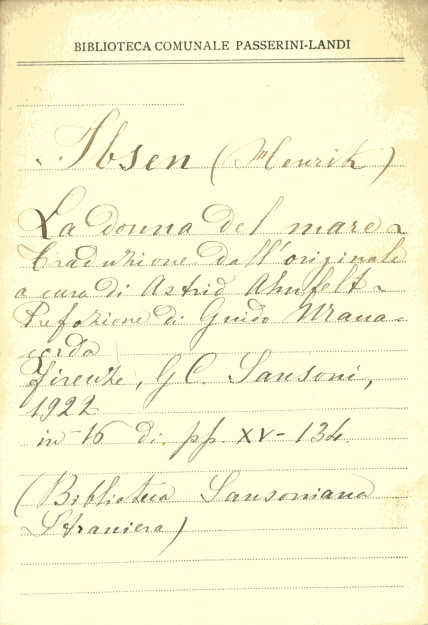 BIBLIOTECA COMUNALE PASSERINI-LANDI
Ibsen (Henrik)
La donna del mare -
Traduzione dall'originale
a cura di Astrid Ahnfelt -
Prefazione di Guido Mana-
corda
Firenze, G. C. Sansoni,
1922
in-16 di pp. XV-134.
(Biblioteca Sansoniana
Straniera)